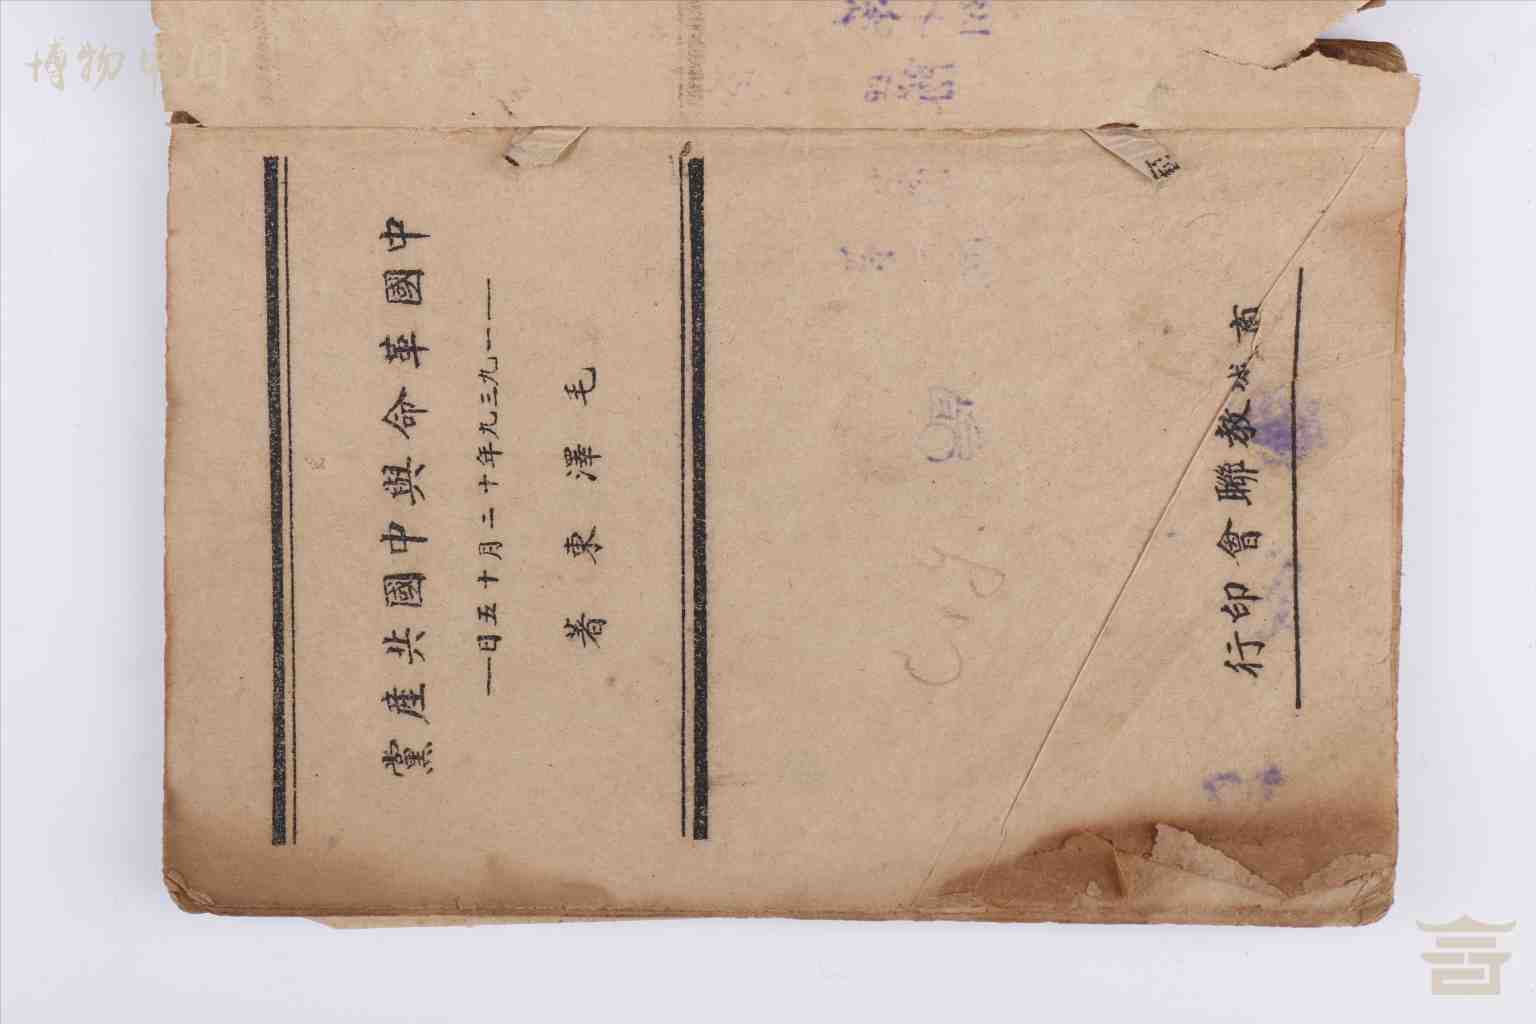 博物中国
中國革命與中國共產黨
—一九三九年十二月十五日—
毛澤東著
教聯會印行